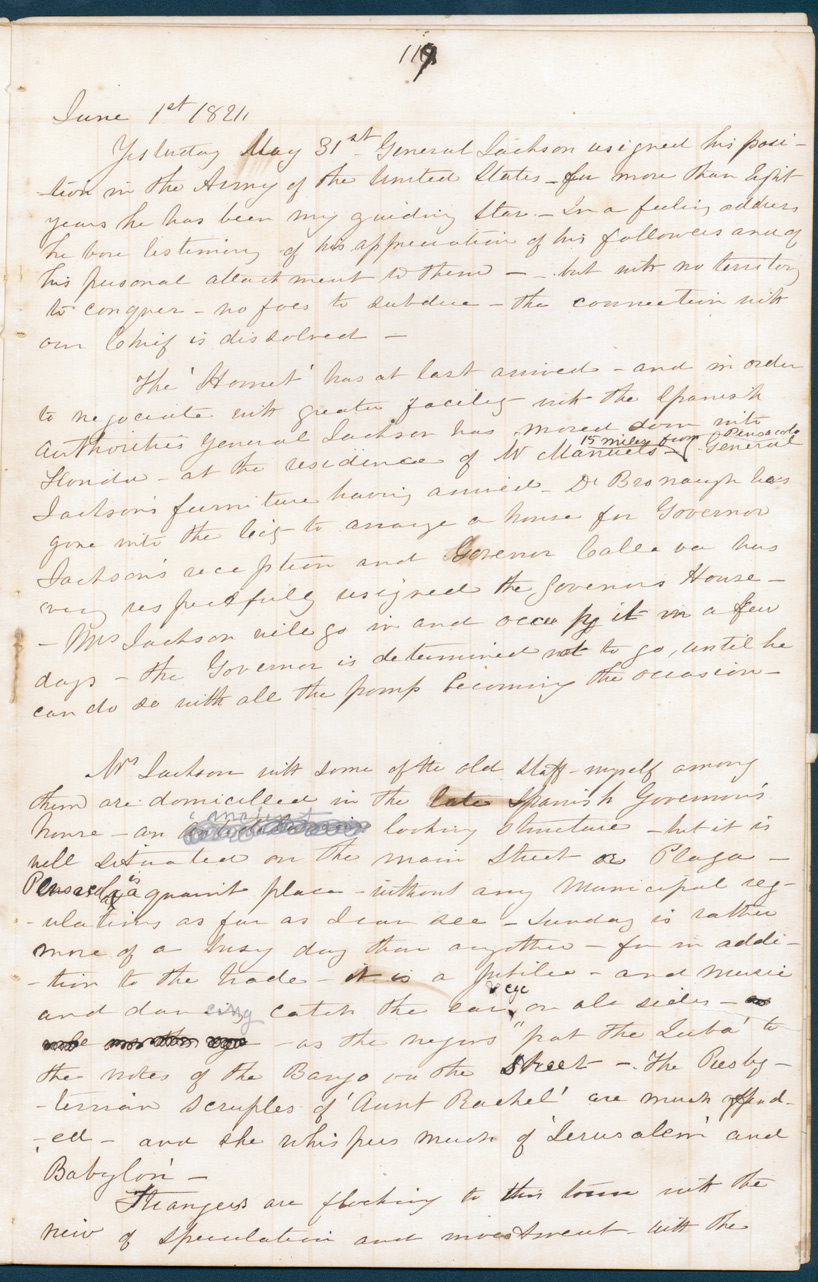 119
June 1st 1821,
Yesterday May 31st General Jackson resigned his posi-
-tion in the Army of the United States - for more than Eight
years he has been my guiding Star - In a feeling address
he bore testimony of his appreciation of his followers and of
his personal attachment to them - - but with no territory
to conquer - no foes to subdue - the connection with
our Chief is dissolved -
The 'Hornet' has at last arrived - and in order
to negociate with greater facility with the Spanish
Authorities General Jackson has moved down into
15 miles from Pensacola
Florida - at the residence of Mr Manuels - General
Jackson's furniture having arrived - Dr Bronaugh has
gone into the City to arrange a house for Governor
Jackson's reception and Govenor Calleva has
very respectfully resigned the Governors House -
- Mrs Jackson will go in and occupy it in a few
days - the Governor is determined not to go, until he
can do so with all the pomp becoming the occasion -
Mrs Jackson with some of the old Staff - myself among
them are domicilled in the late Spanish Governor's
house - an ancient looking structure - but it is
well situated on the main Street or Plaza -
Pensacola is a quaint place - without any Municipal reg-
-ulations as far as I can see - Sunday is rather
more of a busy day than another - for in addi-
-tion to the trade - it is a Jubilee - and music
and dancing catch the ear, eye on all sides -
- as the negros "pat the Juba' to
the notes of the Banjo on the Street - The Presby-
-terian scruples of 'Aunt Rachel' are much offend-
-ed - and she whispers much of 'Jerusalem' and
Babylon' -
Strangers are flocking to this town with the
view of speculation and investment - with the